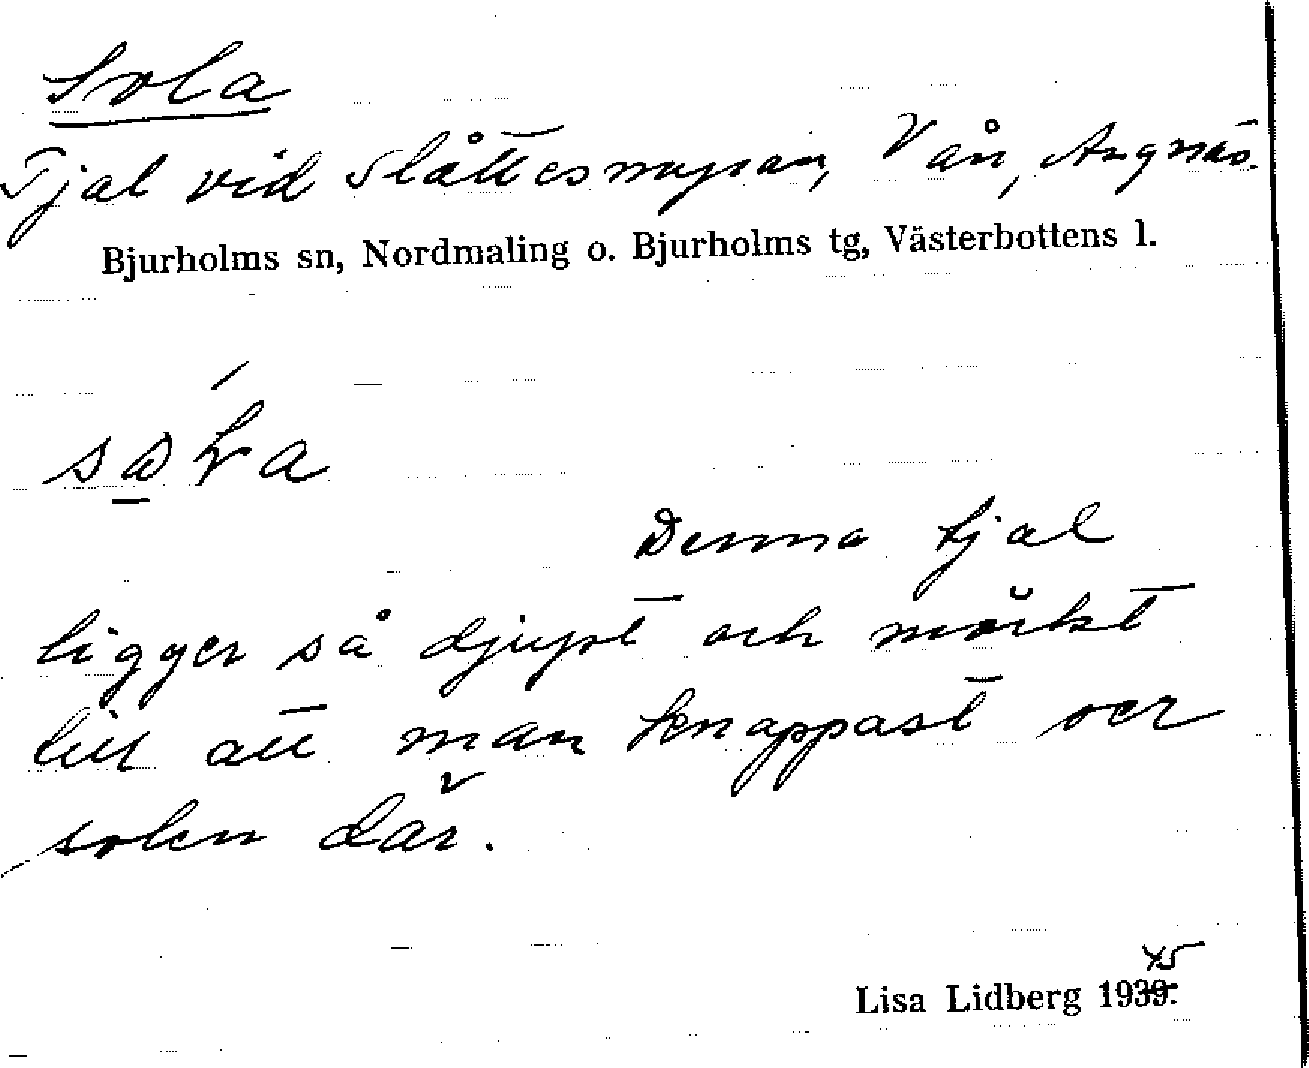 Sola
Tjal vid Slåttesmyran, Vån, Angnäs.
Bjurholms sn, Nordmaling o. Bjurholms tg, Västerbottens l.
Denna tjal
ligger så djupt och mörkt
till att man knappast ser
solen där.
Lisa Lidberg 1945